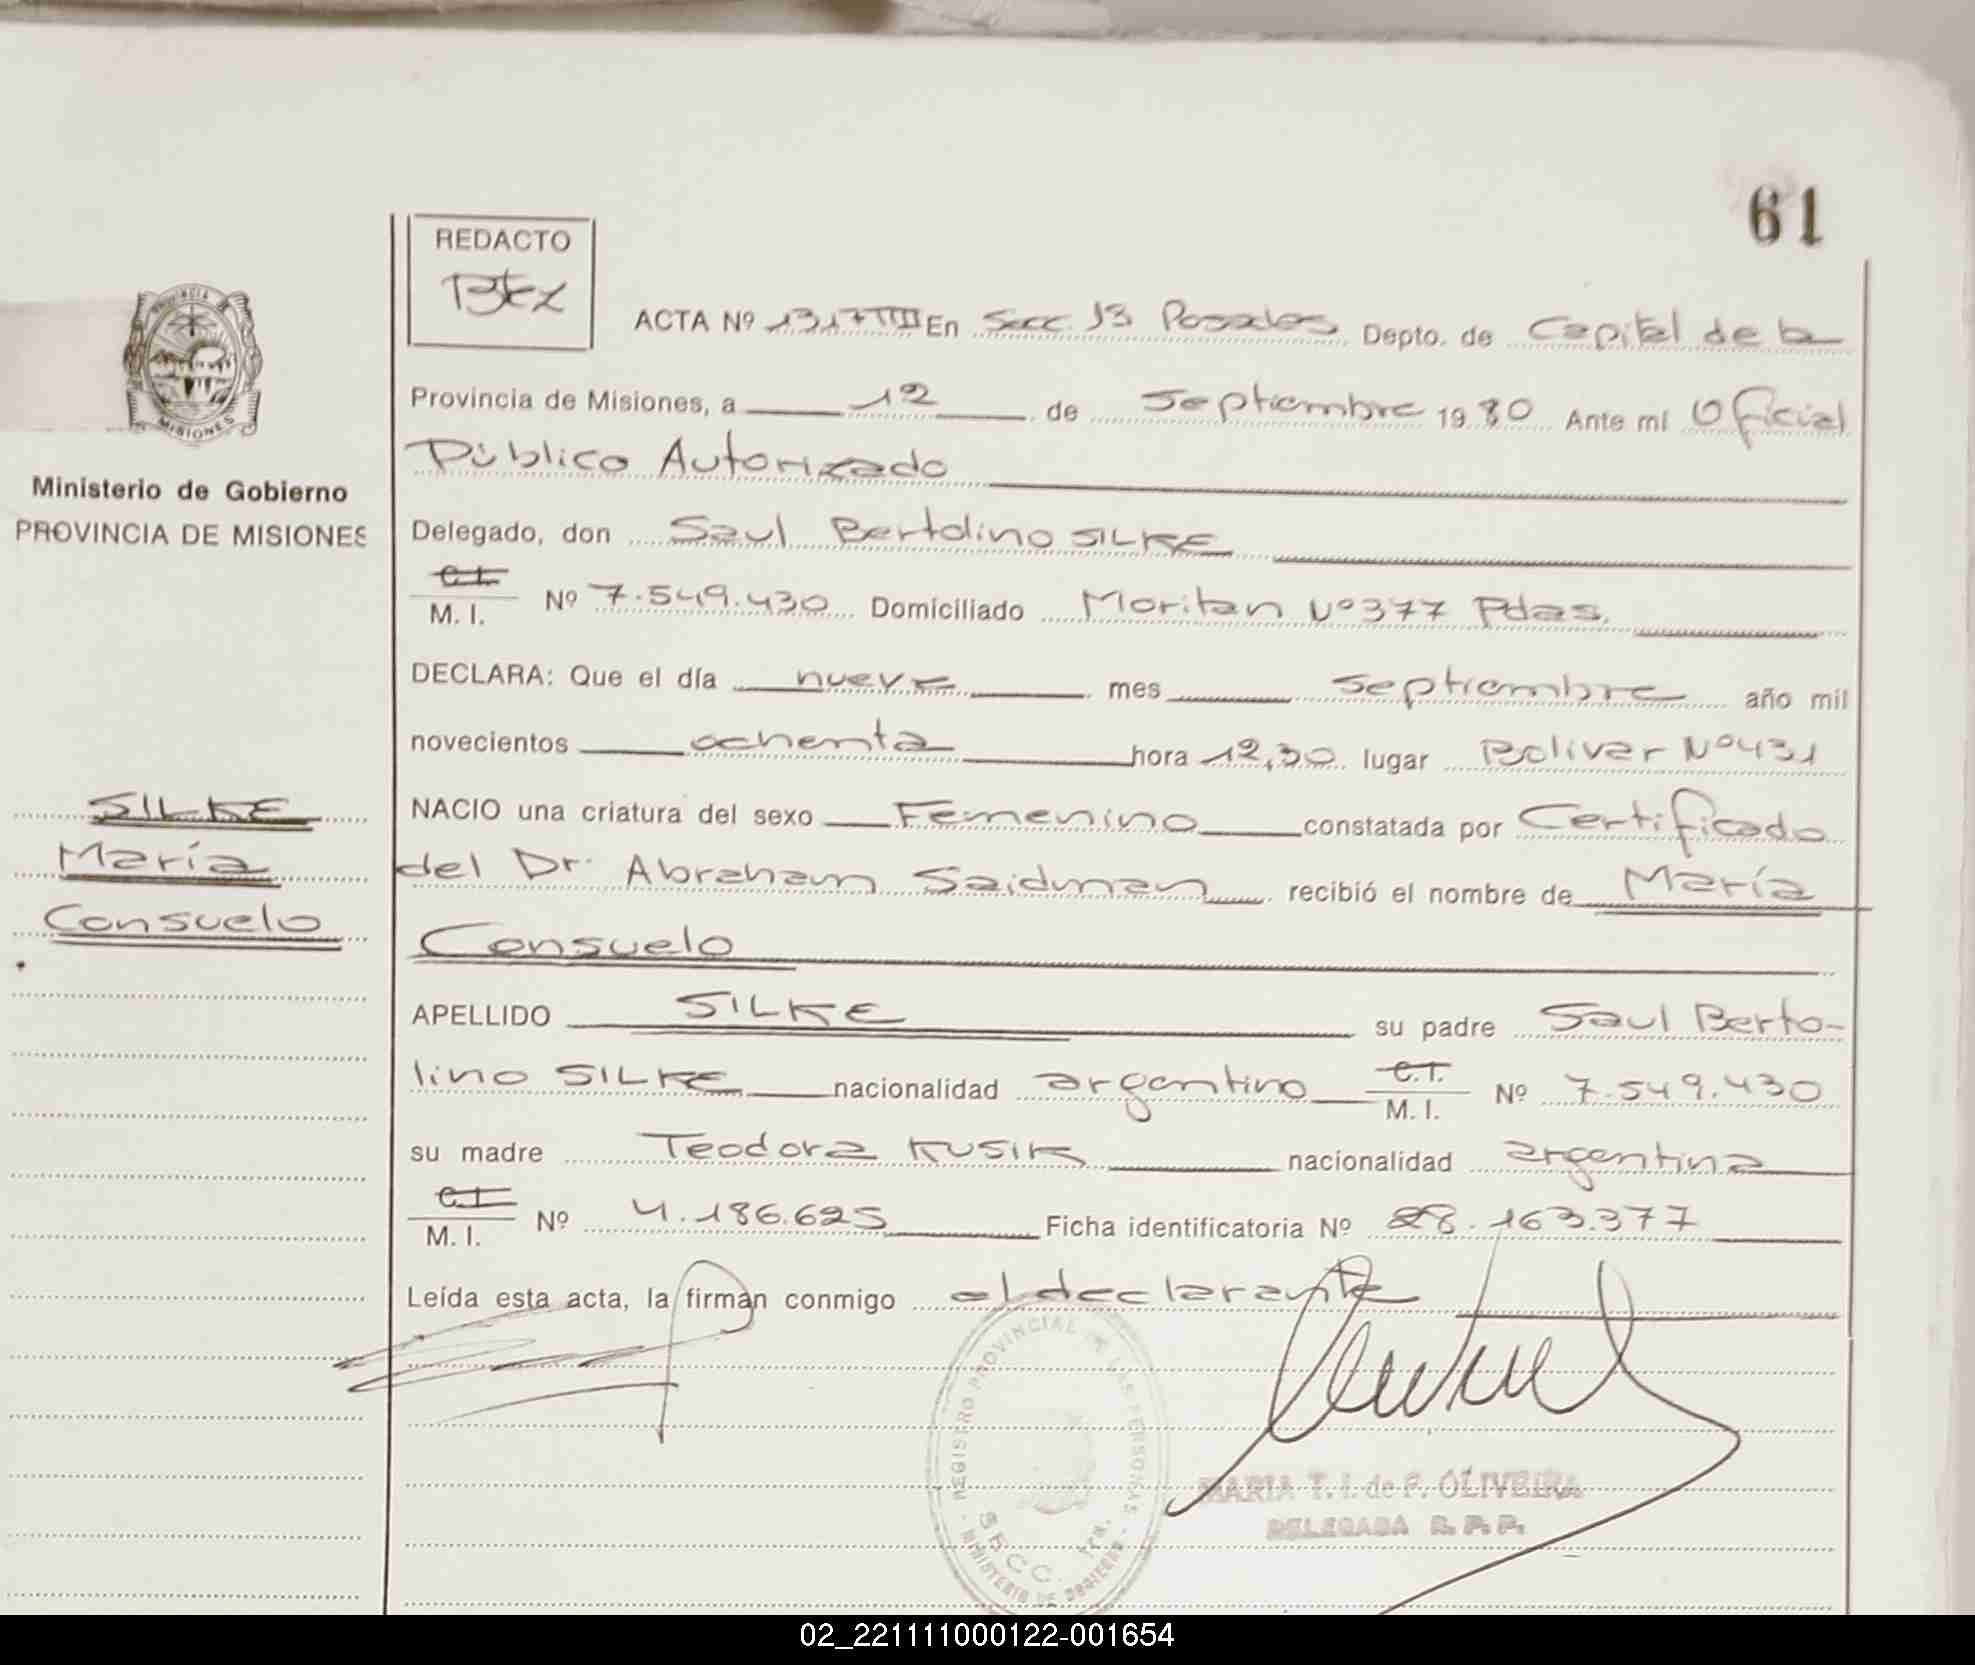 61
REDACTO
ACTA Nº 1317 TIII En Secc. 13 Posadas Depto. de Capital de la
Provincia de Misiones, a 12 de Septiembre 1980 Ante mí Oficial
Público Autorizado
PROVINCIA
MISIONES
Ministerio de Gobierno
PROVINCIA DE MISIONES
Delegado, don Saul Bertolino SILKE
C.I.
M. I. Nº 7.549.430 Domiciliado Moritan Nº 377 Pdas.
DECLARA: Que el día nueve mes septiembre año mil
novecientos ochenta hora 12,30 lugar Bolivar Nº 431
SILKE
María
Consuelo
NACIO una criatura del sexo Femenino constatada por Certificado
del Dr. Abraham Saidman recibió el nombre de María
Consuelo
APELLIDO SILKE su padre Saul Berto-
lino SILKE nacionalidad argentino C.I. M. I. Nº 7.549.430
su madre Teodora KUSIK nacionalidad argentina
C.I.
M. I. Nº 4.186.625 Ficha identificatoria Nº 28.163.377
Leída esta acta, la firman conmigo el declarante
REGISTRO PROVINCIAL DE LAS PERSONAS
MINISTERIO DE GOBIERNO
SECC. 1ra.
MARIA T. I. de F. OLIVEIRA
DELEGADA R. P. P.
02_221111000122-001654